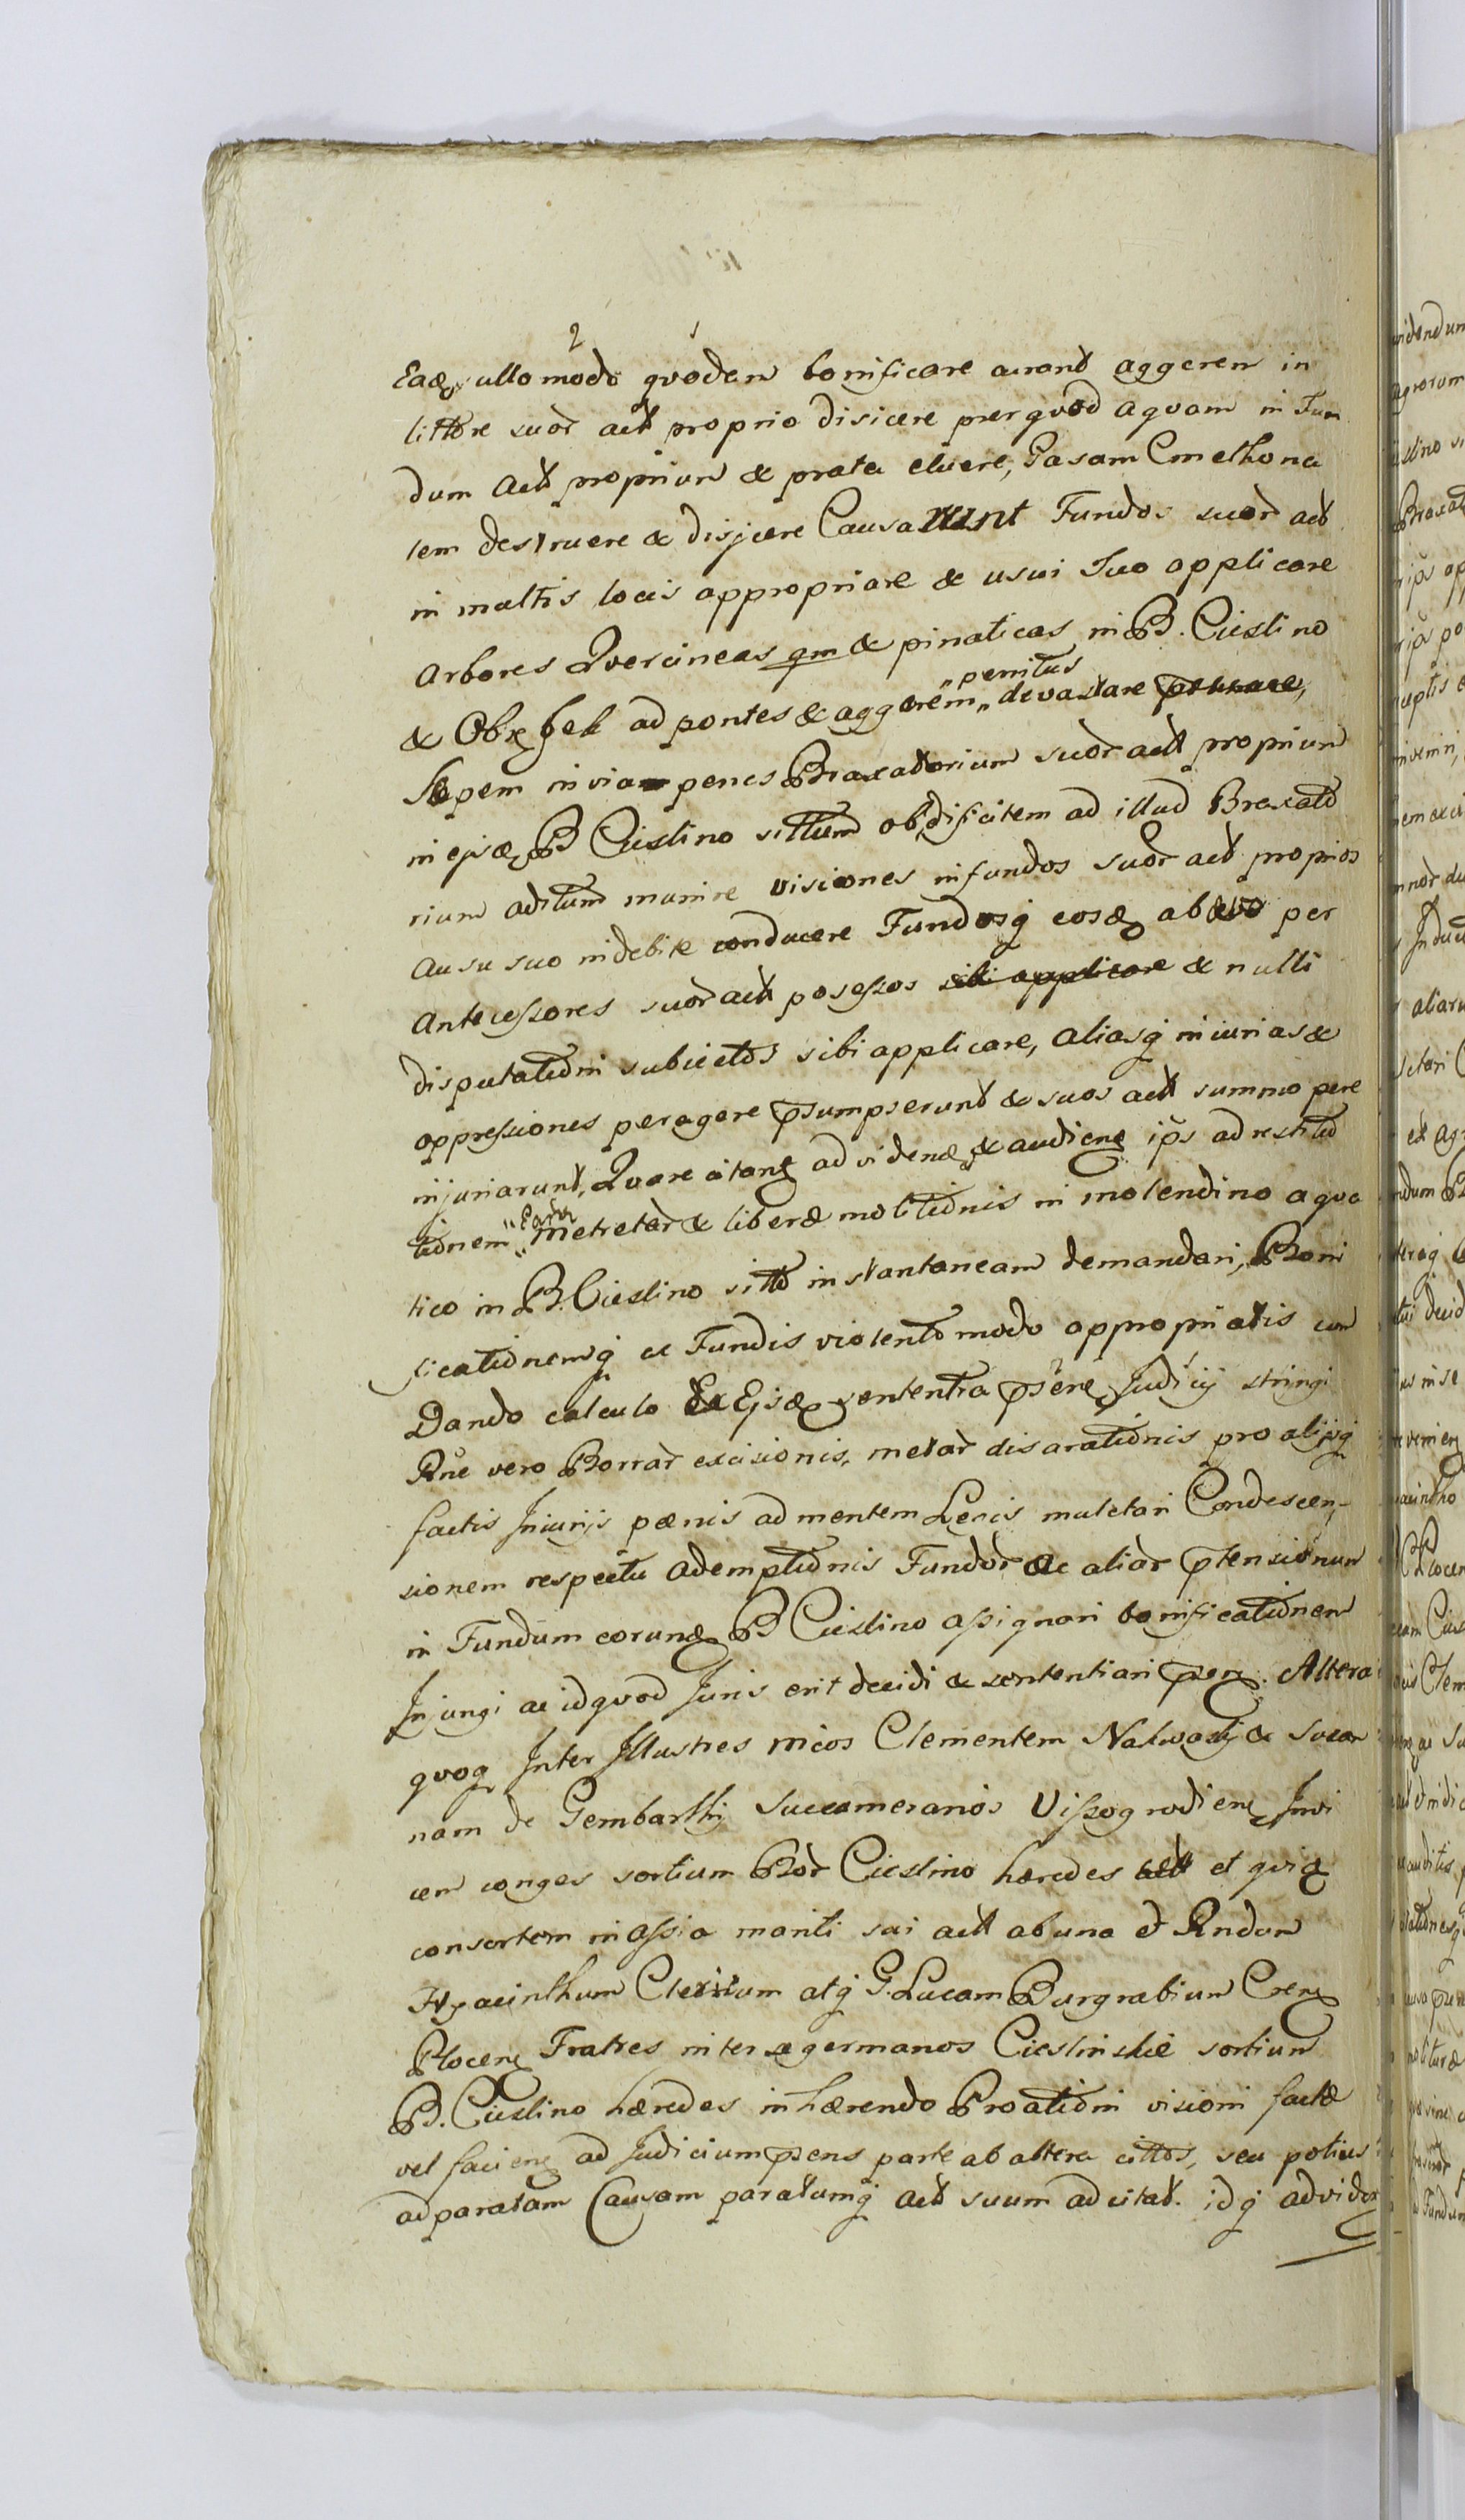 2 1
Eaq ullo modo qvodam bonificare curant aggerem in
littore suor act proprio disicere per qvod aqvam in Fun
dum act proprium & prata eluere, Casam Cmethona
lem destruere & disjicere Causarunt Fundos suor act
in multis locis appropriare & usui suo applicare
arbores Qvercineas qm & pinaticas in B. Cieslino
& Obręb ad pontes & aggerem „ penitus „ devastare
Sepem in via penes Braxatorium suor act proprium
in ejsdę B Cieslino sittum obdificitem ad illud Braxato
rium aditum munire visiones in fundos suor act proprios
ausu suo indebite conducere Fundosq eosdę ab ævo per
antecessores suor act posessos sibi applicare & nulli
disputationi subiectos sibi applicare, aliasq iniurias &
oppressiones peragere psumpserunt & suos act summo pere
injuriarunt, Qvare citantę ad videndę & audiendę ips ad restitu
tionem „ Earu „ metretar & liberæ molitionis in molendino aqva
tico in B. Cieslino sitto instantaneam demandari, Boni
ficationemq ac Fundis violento modo appropriatis cum
Dando calculo Ex Ejsdę sententia psenę Judicij stringi
Rne vero Borrar excisionis, metar disarationis pro alijsq
factis Iniurijs pænis ad mentem Legis mulctari Condescen-
sionem respectu ademptionis Fundor ac aliar ptensionum
in Fundum eorundę B Cieslino assignari bonificationem
Injungi ac id qvod Juris erit decidi & sententiari psenę. Altera
qvoq Inter Illustres Mcos Clementem Nakwaski & Susan
nam de Gembarth Succameranos Viszogrodienę Invi
cem conges sortium Bor Cieslino hæredes act et qvidę
consortem in assia mariti sui act ab una et Rndum
Hyacinthum Clericum atq G. Lucam Burgrabium Crenę
Plocenę Fratres inter se germanos Cieslinskie sortium
B. Cieslino hæredes inhærendo Proationi visioni factæ
vel faciendę ad Judicium psens parte ab altera cittos, seu potius
ad paratam Causam paratumq act suum ad citat. idq ad viden